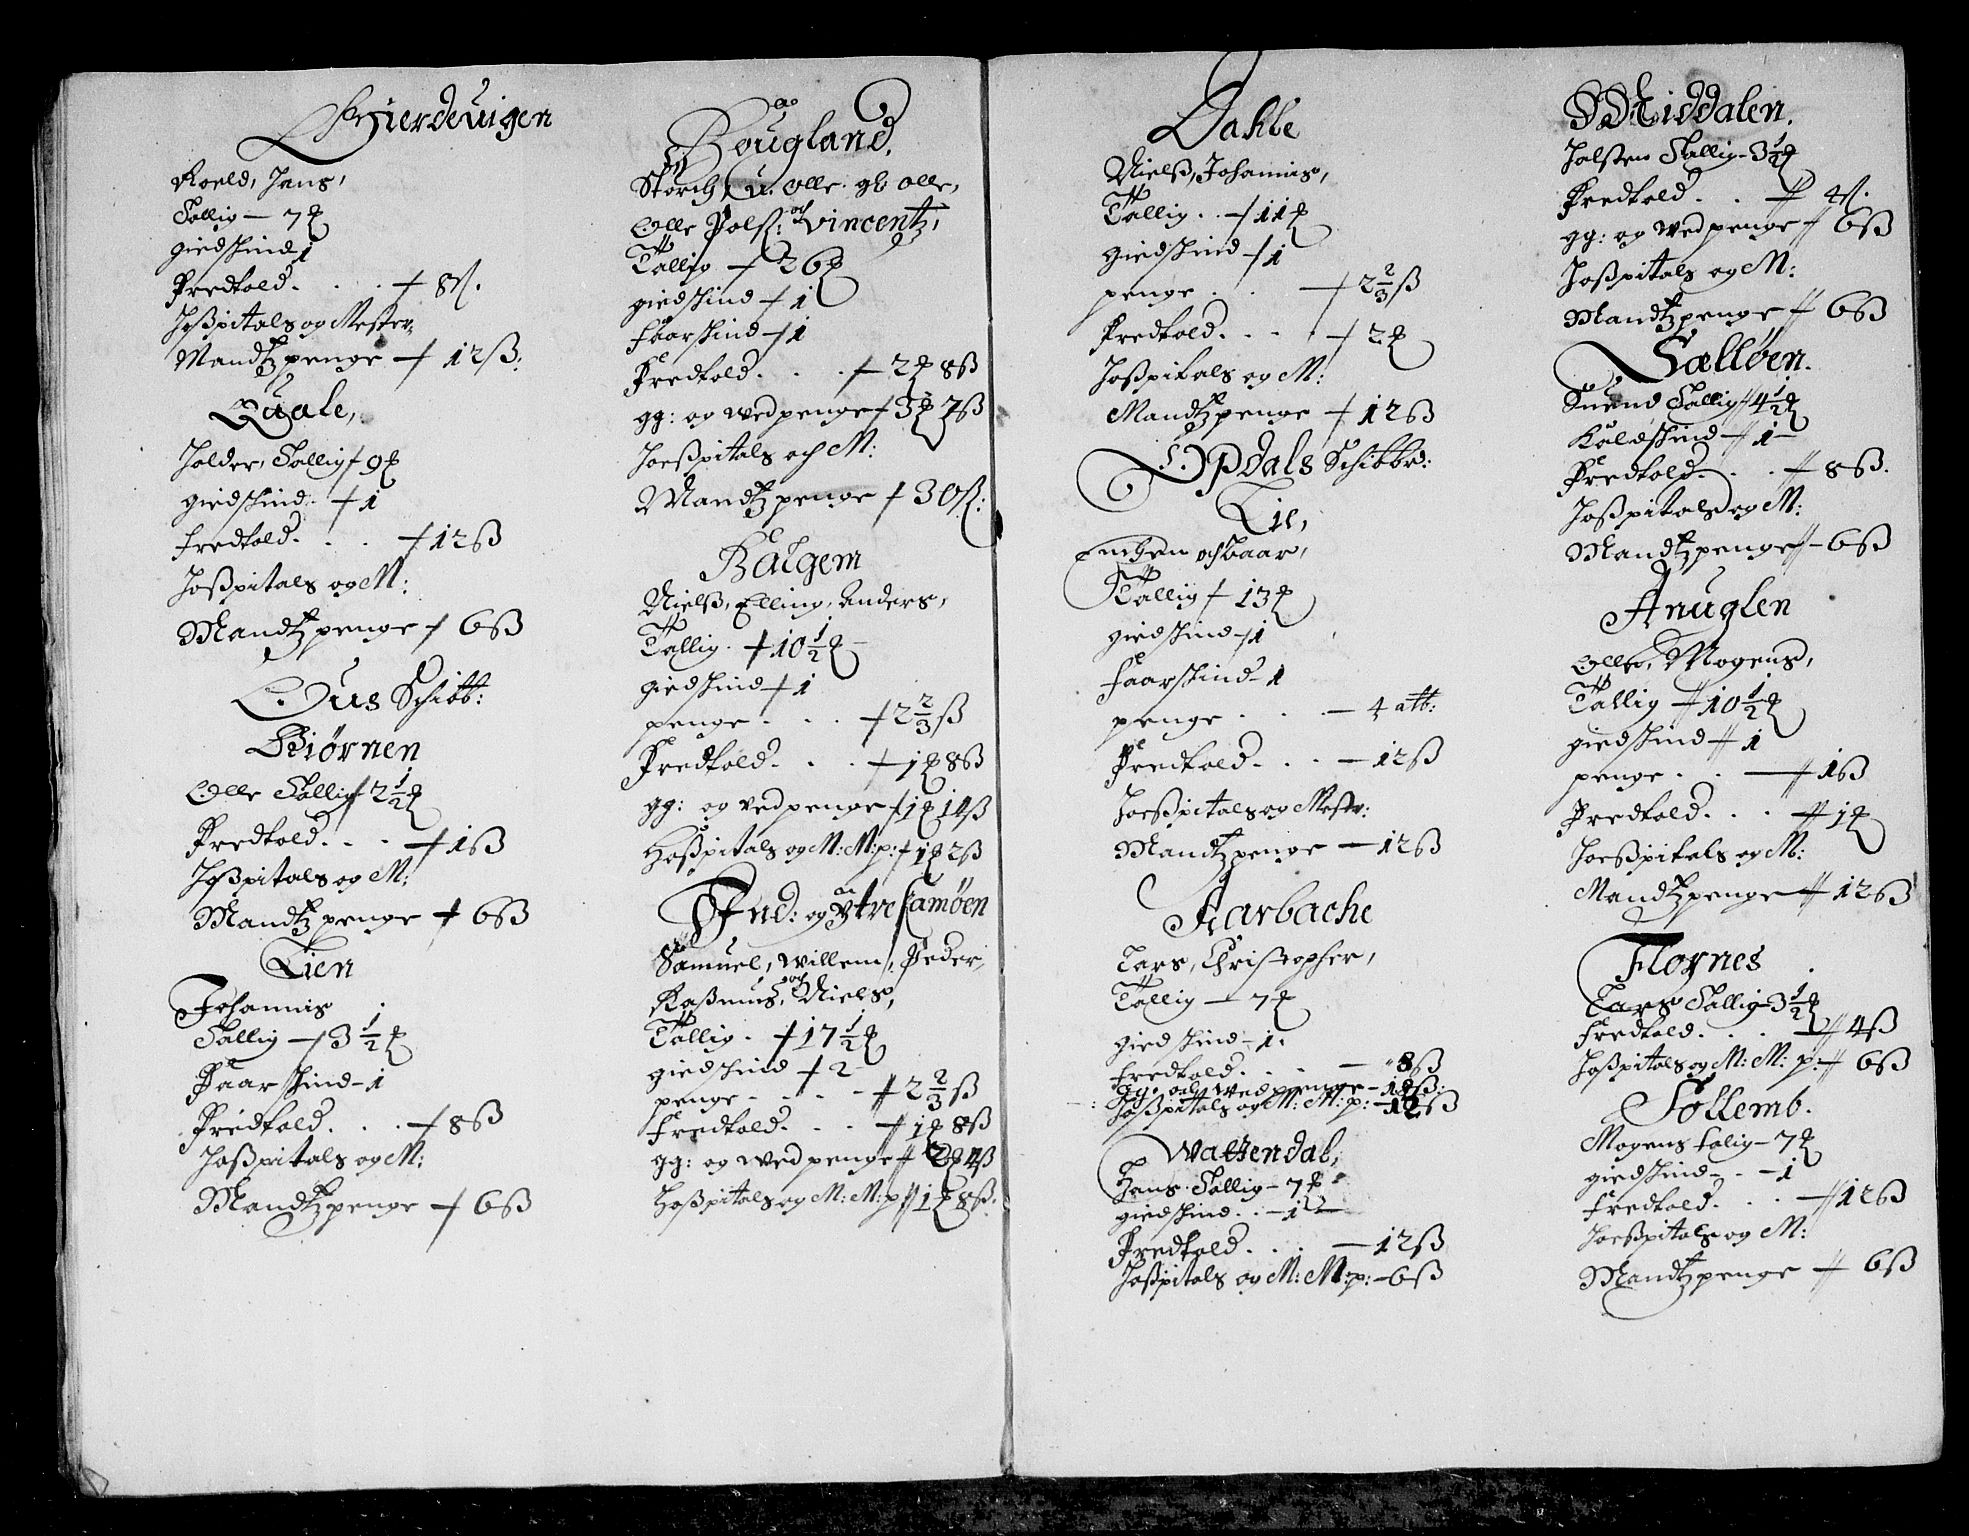 Gierdeuigen
Roeld, Jens,
Tallig — 7 ₰
giedskind 1
Fredtold. . . . + 8 ß.
Hoßpitals og Mester,
Mandtzpenge + 12 ß:
Quale,
Holder, Tallig + 9 ₰
giedskind. + 1
Fredtold. . . + 12 ß
Hoßpitals og M:
Mandtzpenge + 6 ß
Ous Schibb:
Biørnen
Olle Tallig + 2 ½ ₰
Fredtold. . . + 1 ß
Hoßpitals og M:
Mandtzpenge + 6 ß
Lien
Johannis
Tallig — + 3 ½ ₰
Faarskind — 1
Fredtold. . . + 8 ß
Hoßpitals og M:
Mandtzpenge + 6 ß
Rougland.
Storch, u. Olle. gl Olle,
Olle Polß: och Vincentz,
Tallig + 26 ₰
giedskind + 1
Faarskind + 1
Fredtold. . . + 2 ₰ 8 ß
gg: og wedpenge + 3 ₰ 7 ß
Hoeßpitals och M:
Mandtzpenge + 30 ß:
Balgem
Nielß, Elling, Anders,
Tallig. + 10 ½ ₰
giedskind + 1
penge. . . + 2 ⅔ ß
Fredtold. . . + 1 ₰ 8 ß
gg: og vedpenge + 1 ₰ 14 ß
Hoßpitals og M: M: p: + 1 ₰ 2 ß
Ind: og Ytre Samøen
Samuel, Willem, Peder,
Raßmus, och Niels,
Tallig. + 17 ½ ₰
giedskind + 2
penge - - - + 2 ⅔ ß
Fredtold. . . + 1 ₰ 8 ß
gg: og wedpenge + 2 ₰ 4 ß
Hoßpitals og M: M: p + 1 ₰ 8 ß.
Dahle
Nielß, Johannis,
Tallig. . + 11 ₰
giedskind + 1
penge . . + 2 ⅔ ß
Fredtold. . . + 2 ₰
Hoßpitals og M:
Mandtzpenge + 12 ß
Opdals Schibbrd:
Lie,
Enchen och Baar,
Tallig + 13 ₰
giedskind + 1
Faarskind - 1
penge . . . — 4 alb:
Fredtold. . . — 12 ß
Hoeßpitals og Mestr:
Mandtzpenge — 12 ß
Aarbache
Lars, Christopher,
Tallig — 7 ₰
giedskind — 1.
Fredtold. . . — 8 ß
gg: och wedpenge — 18 ß:
Hoßpitals og M: M: p: — 12 ß
Wattendal,
Hans. Tallig — 7 ₰
giedskind. . — 1
Fredtold. . . — 12 ß
Hoßpitals og M: M: p: — 6 ß
Middalen.
Holsten Tallig — 3 ½ ₰
Fredtold. . + 4 ß.
gg: og wedpenge + 6 ß
Hoßpitals og M:
Mandtzpenge + 6 ß
Sælløen.
Suend Tallig + 4 ½ ₰
Kaldskind + 1 —
Fredtold. . . + 8 ß.
Hoßpitals og M:
Mandtzpenge + 6 ß
Anuglen
Olle, Mogens,
Tallig + 10 ½ ₰
giedskind + 1
penge. . — + 1 ß
Fredtold. . . + 1 ₰
Hoeßpitals og M:
Mandtzpenge + 12 ß
Flornes
Lars Tallig — 3 ½ ₰
Fredtold. . . + 4 ß
Hoßpitals og M: M: p: + 6 ß
Tollemb.
Mogens Talig — 7 ₰
giedskind — . — 1
Fredtold. . . + 12 ß
Hoeßpitals og M:
Mandtzpenge + 6 ß